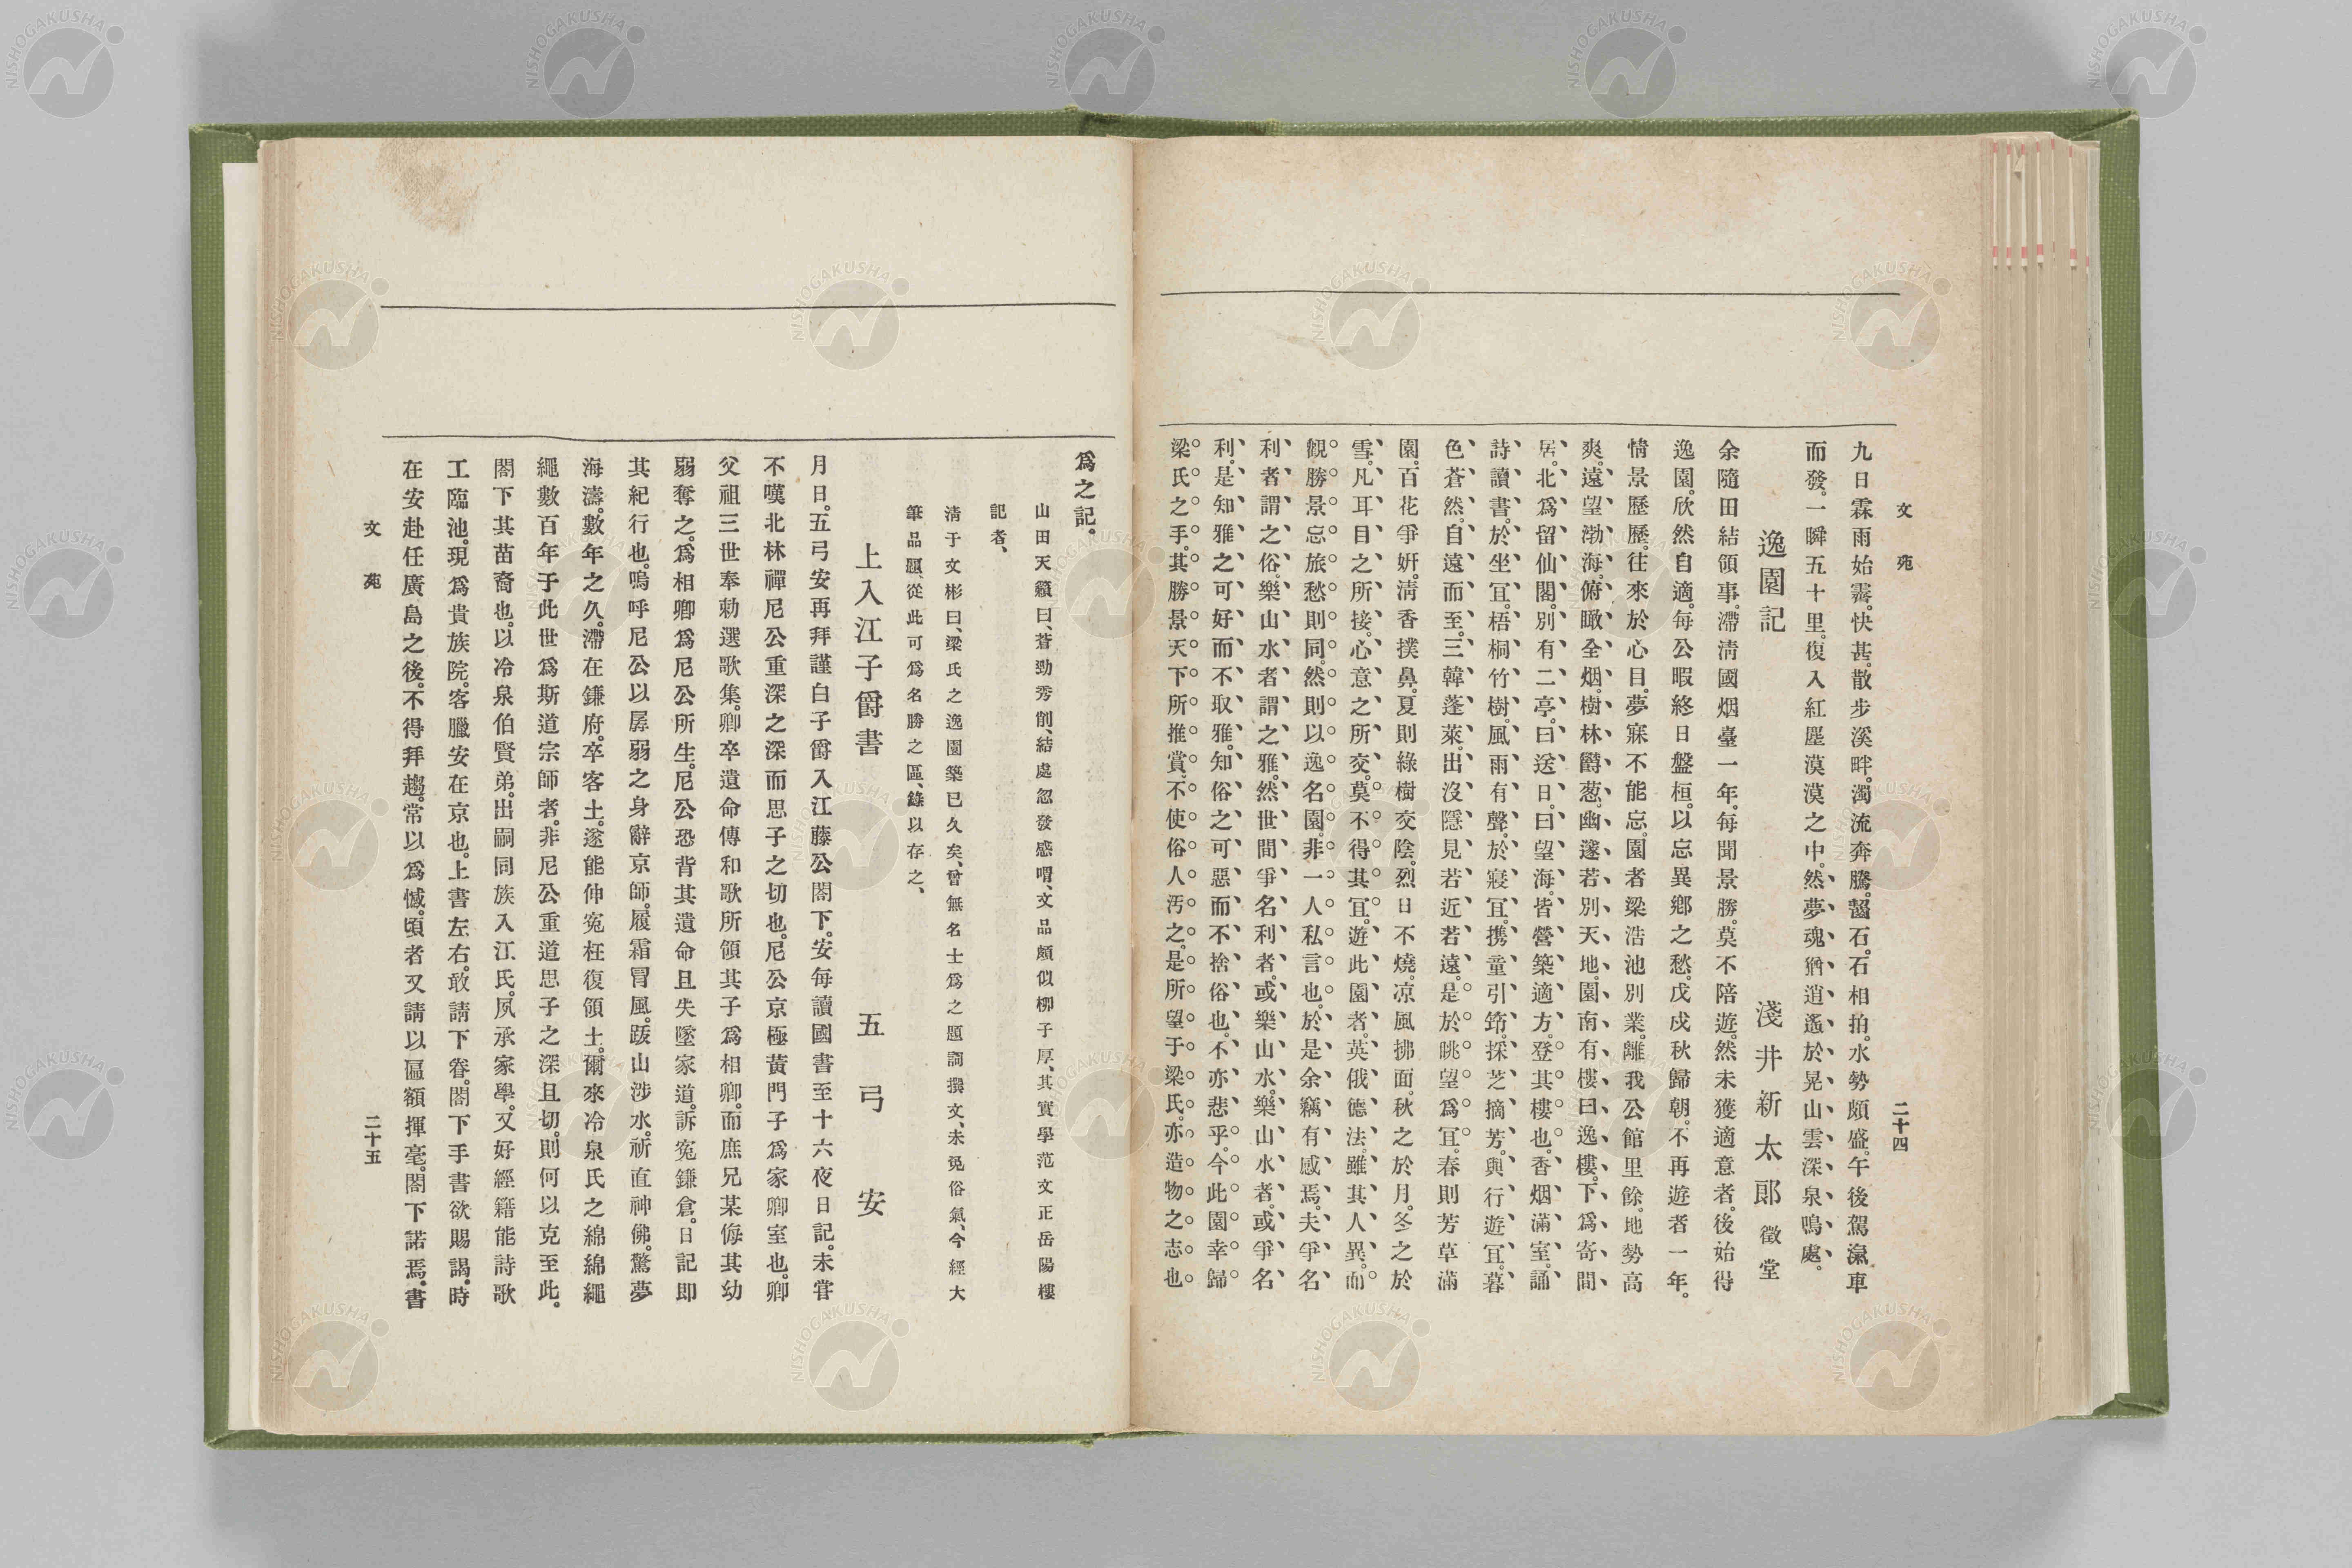 文苑
二十四
九日霖雨始霽。快甚。散步溪畔。濁流奔騰。齧石。石相拍。水勢頗盛。午後駕滊車
而發。一瞬五十里。復入紅塵漠漠之中。然夢魂猶逍遙於晃山雲深泉鳴處。
逸園記
淺井新太郞徵堂
余隨田結領事。滯淸國烟臺一年。每聞景勝。莫不陪遊。然未獲適意者。後始得
逸園。欣然自適。每公暇終日盤桓。以忘異鄕之愁。戊戌秋歸朝。不再遊者一年。
情景歷歷。往來於心目。夢寐不能忘。園者梁浩池別業。離我公館里餘。地勢高
爽。遠望渤海。俯瞰全烟。樹林欝葱。幽邃若別天地。園南有樓。曰逸樓。下爲寄間
居。北爲留仙閣。別有二亭。曰送日。曰望海。皆營築適方。登其樓也。香烟滿室。誦
詩讀書。於坐宜。梧桐竹樹。風雨有聲。於寢宜。携童引筇。採芝摘芳。與行遊宜。暮
色蒼然。自遠而至。三韓蓬萊。出沒隱見。若近若遠。是於眺望爲宜。春則芳草滿
園。百花爭姸。淸香撲鼻。夏則綠樹交陰。烈日不燒。凉風拂面。秋之於月。冬之於
雪。凡耳目之所接。心意之所交。莫不得其宜。遊此園者。英俄德法。雖其人異。而
觀勝景忘旅愁則同。然則以逸名園。非一人私言也。於是余竊有感焉。夫爭名
利者謂之俗。樂山水者謂之雅。然世間爭名利者。或樂山水。樂山水者。或爭名
利。是知雅之可好而不取雅。知俗之可惡而不捨俗也。不亦悲乎。今此園幸歸
梁氏之手。其勝景天下所推賞。不使俗人汚之。是所望于梁氏。亦造物之志也。
爲之記。
山田天籟曰、蒼勁秀削、結處忽發感喟、文品頗似柳子厚、其實學范文正岳陽樓
記者、
淸于文彬曰、梁氏之逸園築已久矣、曾無名士爲之題詞撰文、未免俗氣、今經大
筆品題、從此可爲名勝之區、錄以存之、
上入江子爵書
五弓安
月日。五弓安再拜謹白子爵入江藤公閣下。安每讀國書至十六夜日記。未甞
不嘆北林禪尼公重深之深而思子之切也。尼公京極黃門子爲家卿室也。卿
父祖三世奉勅選歌集。卿卒遺命傳和歌所領其子爲相卿。而庶兄某侮其幼
弱奪之。爲相卿爲尼公所生。尼公恐背其遺命且失墜家道。訴寃鎌倉。日記即
其紀行也。嗚呼尼公以孱弱之身辭京師。履霜冒風。跋山涉水。祈直神佛。驚夢
海濤。數年之久。滯在鎌府。卒客土。遂能伸寃枉復領土。爾來冷泉氏之綿綿繩
繩數百年于此世爲斯道宗師者。非尼公重道思子之深且切。則何以克至此。
閣下其苗裔也。以冷泉伯賢弟。出嗣同族入江氏。夙承家學。又好經籍能詩歌
工臨池。現爲貴族院。客臘安在京也。上書左右。敢請下眷。閣下手書欲賜謁。時
在安赴任廣島之後。不得拜趨。常以爲憾。頃者又請以匾額揮毫。閣下諾焉。書
文苑
二十五